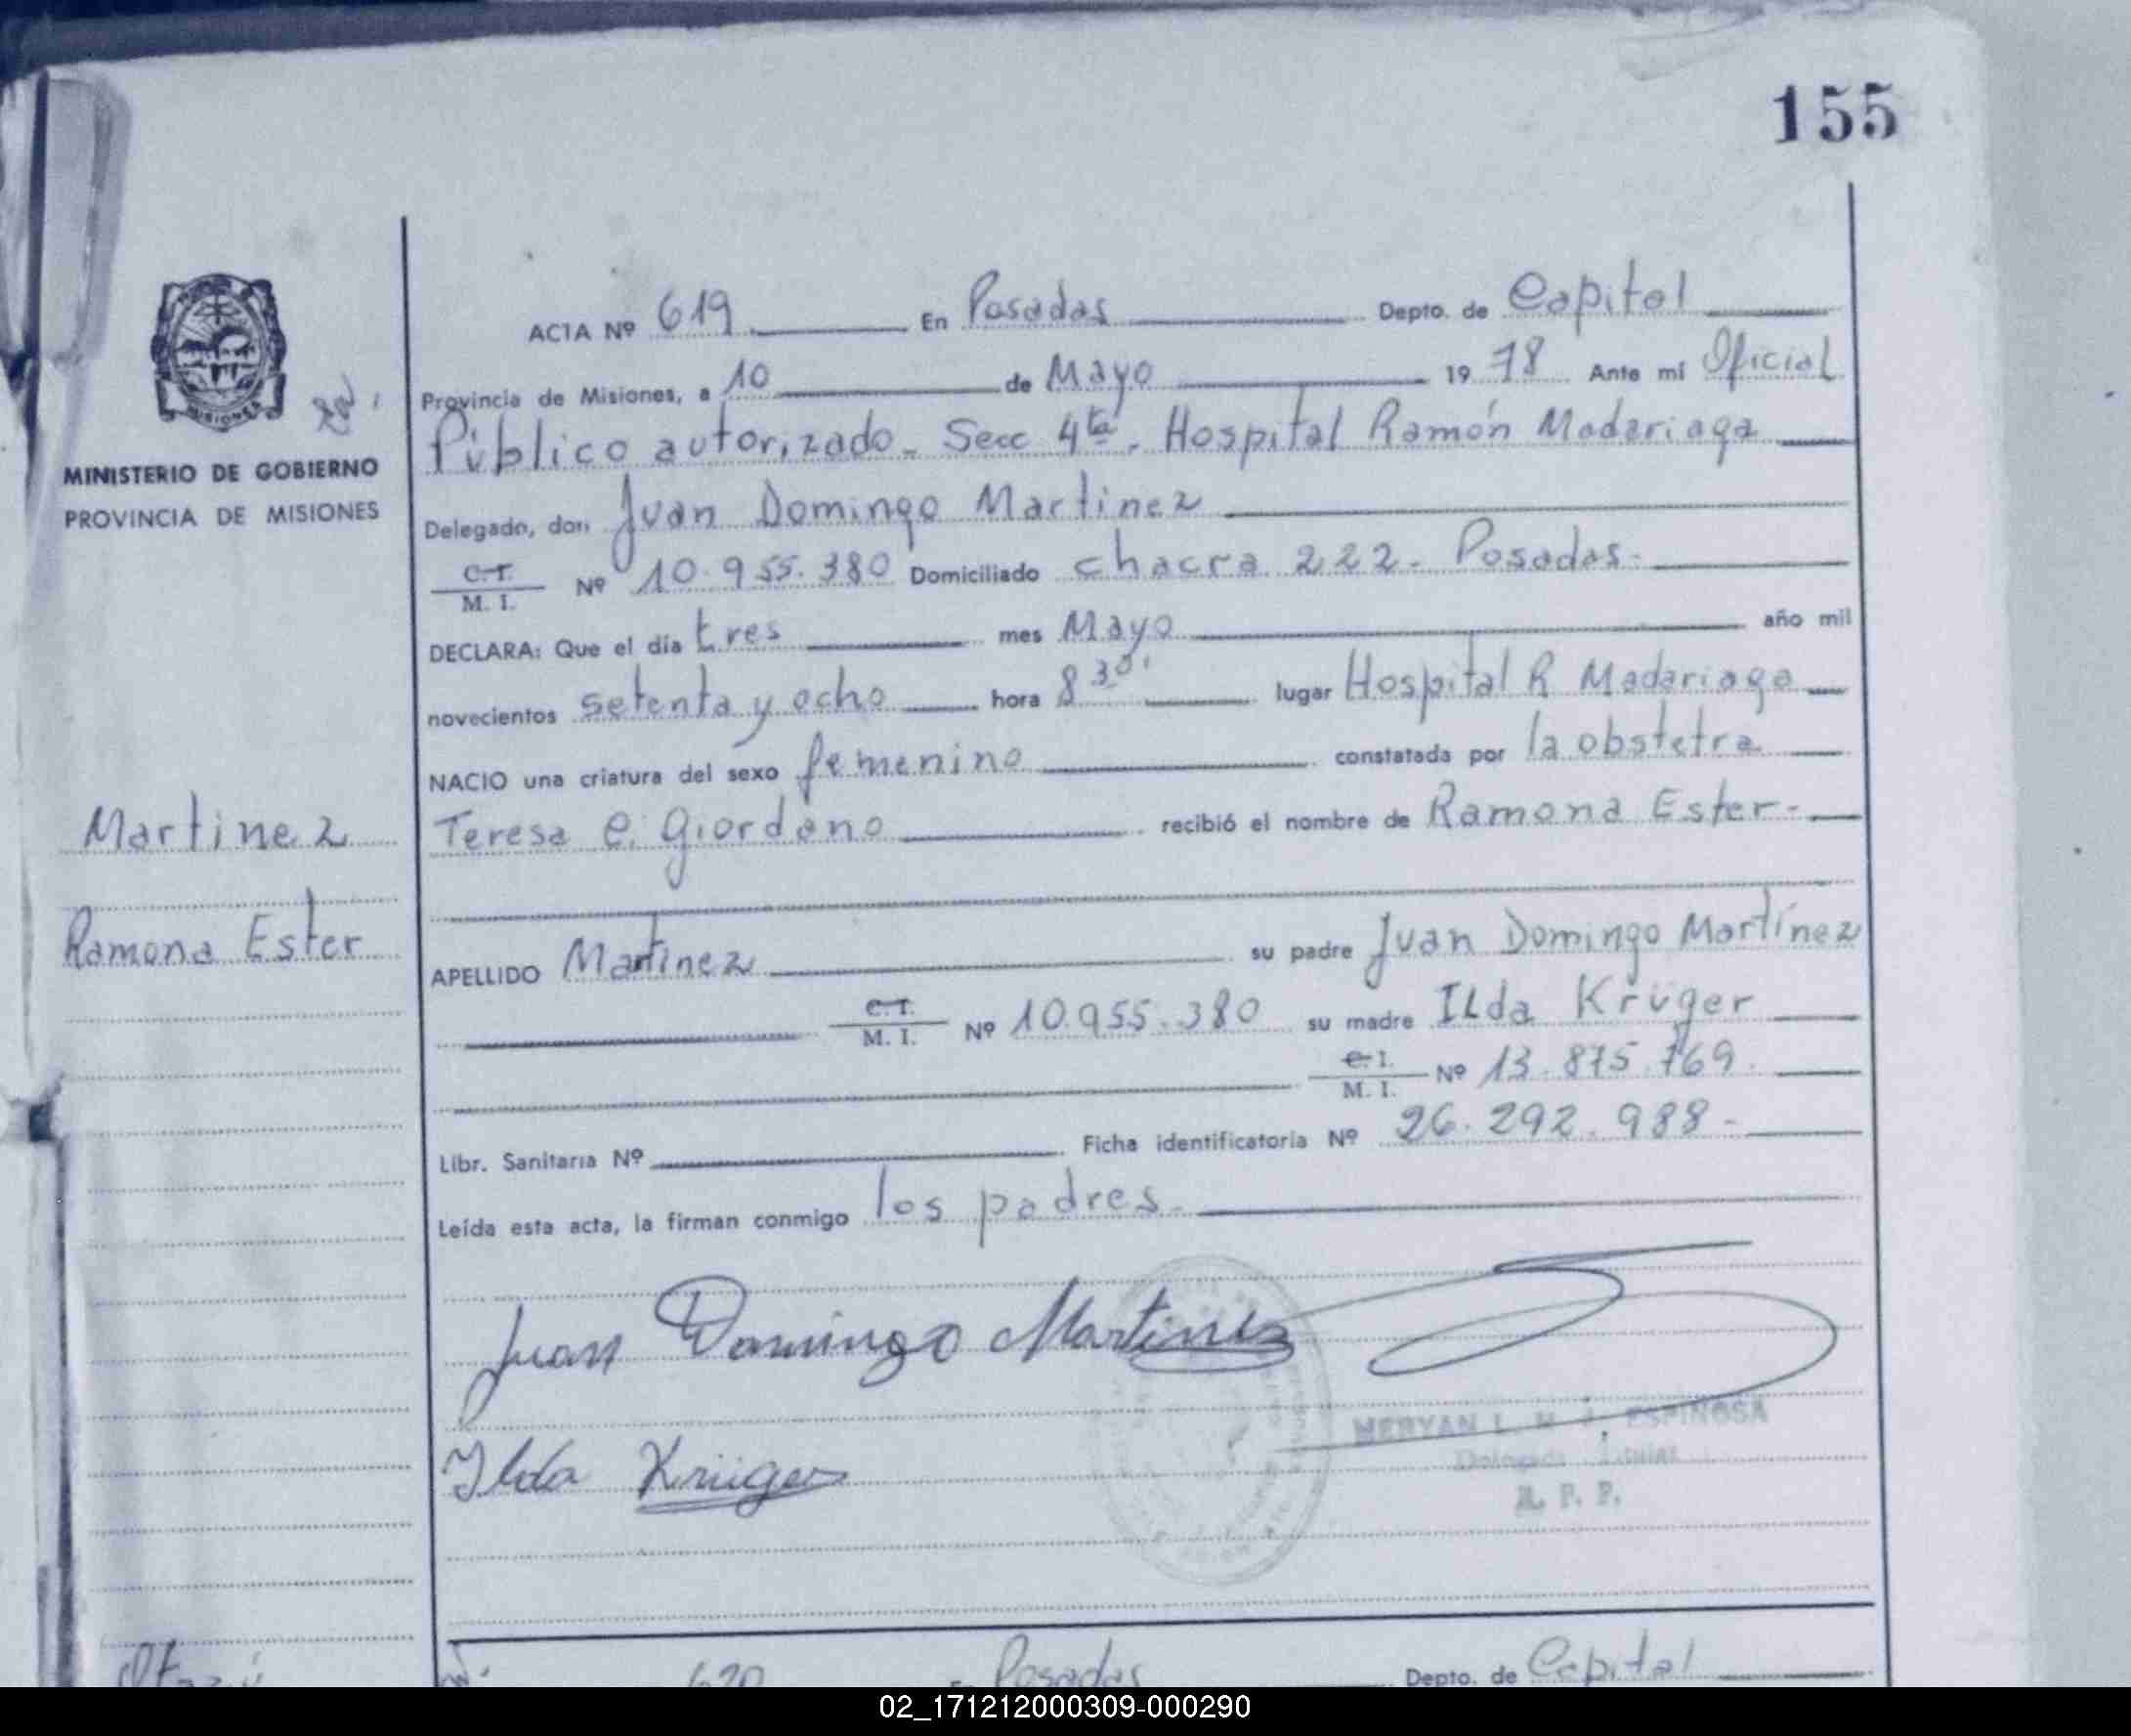 155
ACTA Nº 619 En Posadas Depto. de Capital
Provincia de Misiones, a 10 de Mayo 1978 Ante mi Oficial
Público autorizado - Secc 4ta. Hospital Ramón Madariaga
MISIONES
MINISTERIO DE GOBIERNO
PROVINCIA DE MISIONES
Delegado, don Juan Domingo Martinez
C.I.
M. I. Nº 10.955.380 Domiciliado chacra 222 - Posadas-
DECLARA: Que el día tres mes Mayo año mil
novecientos setenta y ocho hora 8 30' lugar Hospital R Madariaga
NACIO una criatura del sexo femenino constatada por la obstetra
Martinez
Teresa E. Giordano recibió el nombre de Ramona Ester-
Ramona Ester
APELLIDO Martinez su padre Juan Domingo Martínez
C.I.
M. I. Nº 10.955.380 su madre ILda Krüger
C.I.
M. I. Nº 13.875.769.
Libr. Sanitaria Nº Ficha identificatoria Nº 26.292.988-
Leída esta acta, la firman conmigo los padres-
Juan Domingo Martinez
MERYAN L. ESPINOSA
Delegada Titular
R. P. P.
Ilda Krüger
620 Posadas Depto. de Capital
02_171212000309-000290